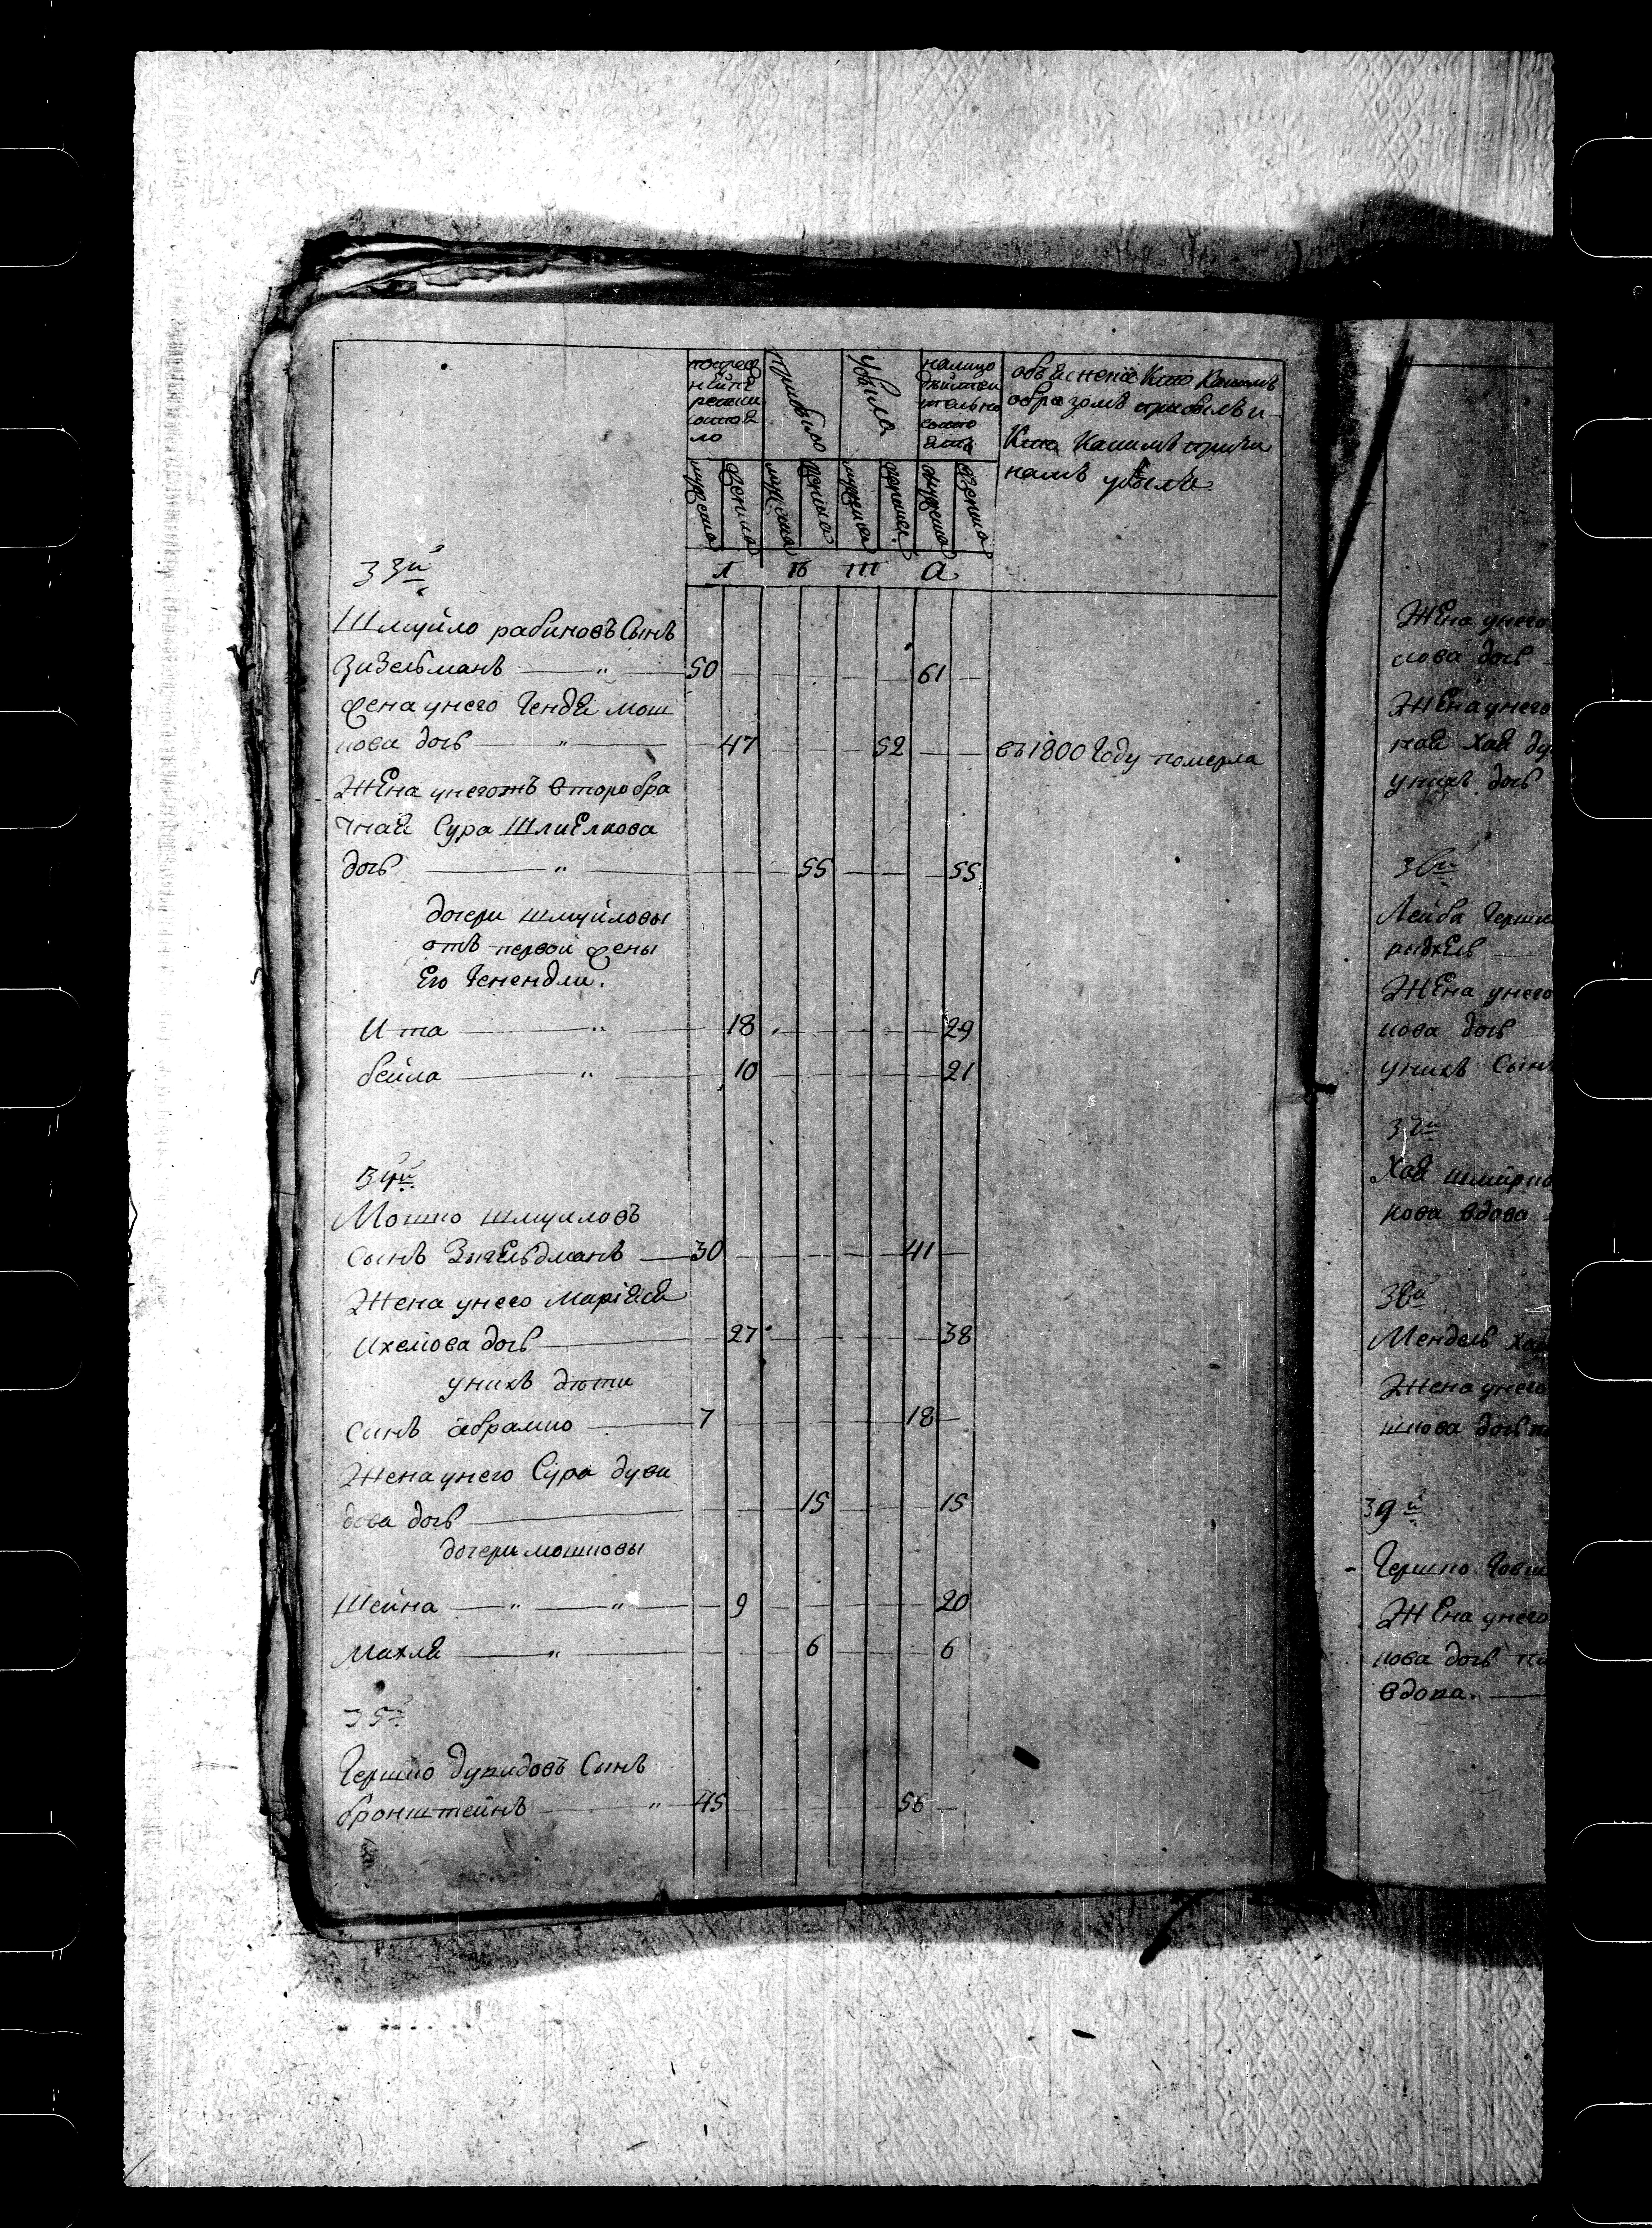 послед
ней по
ревизи
состоя
ло
прибыло
убыло
налицо
действи
тельно
состо
итъ
объяснение кто какимъ
образомъ прибылъ и
кто какимъ причи
намъ убылъ
мужеска
женска
мужеска
женска
мужеска
женска
мужеска
женска
33й
Шмуйло рабиновъ Сынъ
Зизельманъ 50 61
жена унего Генде мош
кова дочь 47 52 въ 1800 Году померла
Жена унегожъ второбра
чная Сура Шлиомкова
дочь 55 55
дочери шмуйловы
отъ первой жены
Его Генендли.
Ита 18 29
бейла 10 21
34й
Мошко шмуиловъ
сынъ Зизельдманъ 30 41
Жена унего Маріася
Ихелова дочь 27 38
унихъ дѣти
синъ абрамко 7 18
Жена унего Сура дуви
дова дочь 15 15
дочери мошковы
Шейна 9 20
Махля 6 6
35й
Гершко дувидовъ Сынъ
бронштейнъ 45 56
Жена унего
кова дочь
Жена унего
ная Хая ду
унихъ дочь
36й
Лейба Герш
Жена унего
кова дочь
унихъ Сынъ
37й
Хая шмир
кова вдова
38й
Мендель ха
Жена унего
шкова дочь
39й
Гершко Гов
Жена унего
кова дочь
вдова.